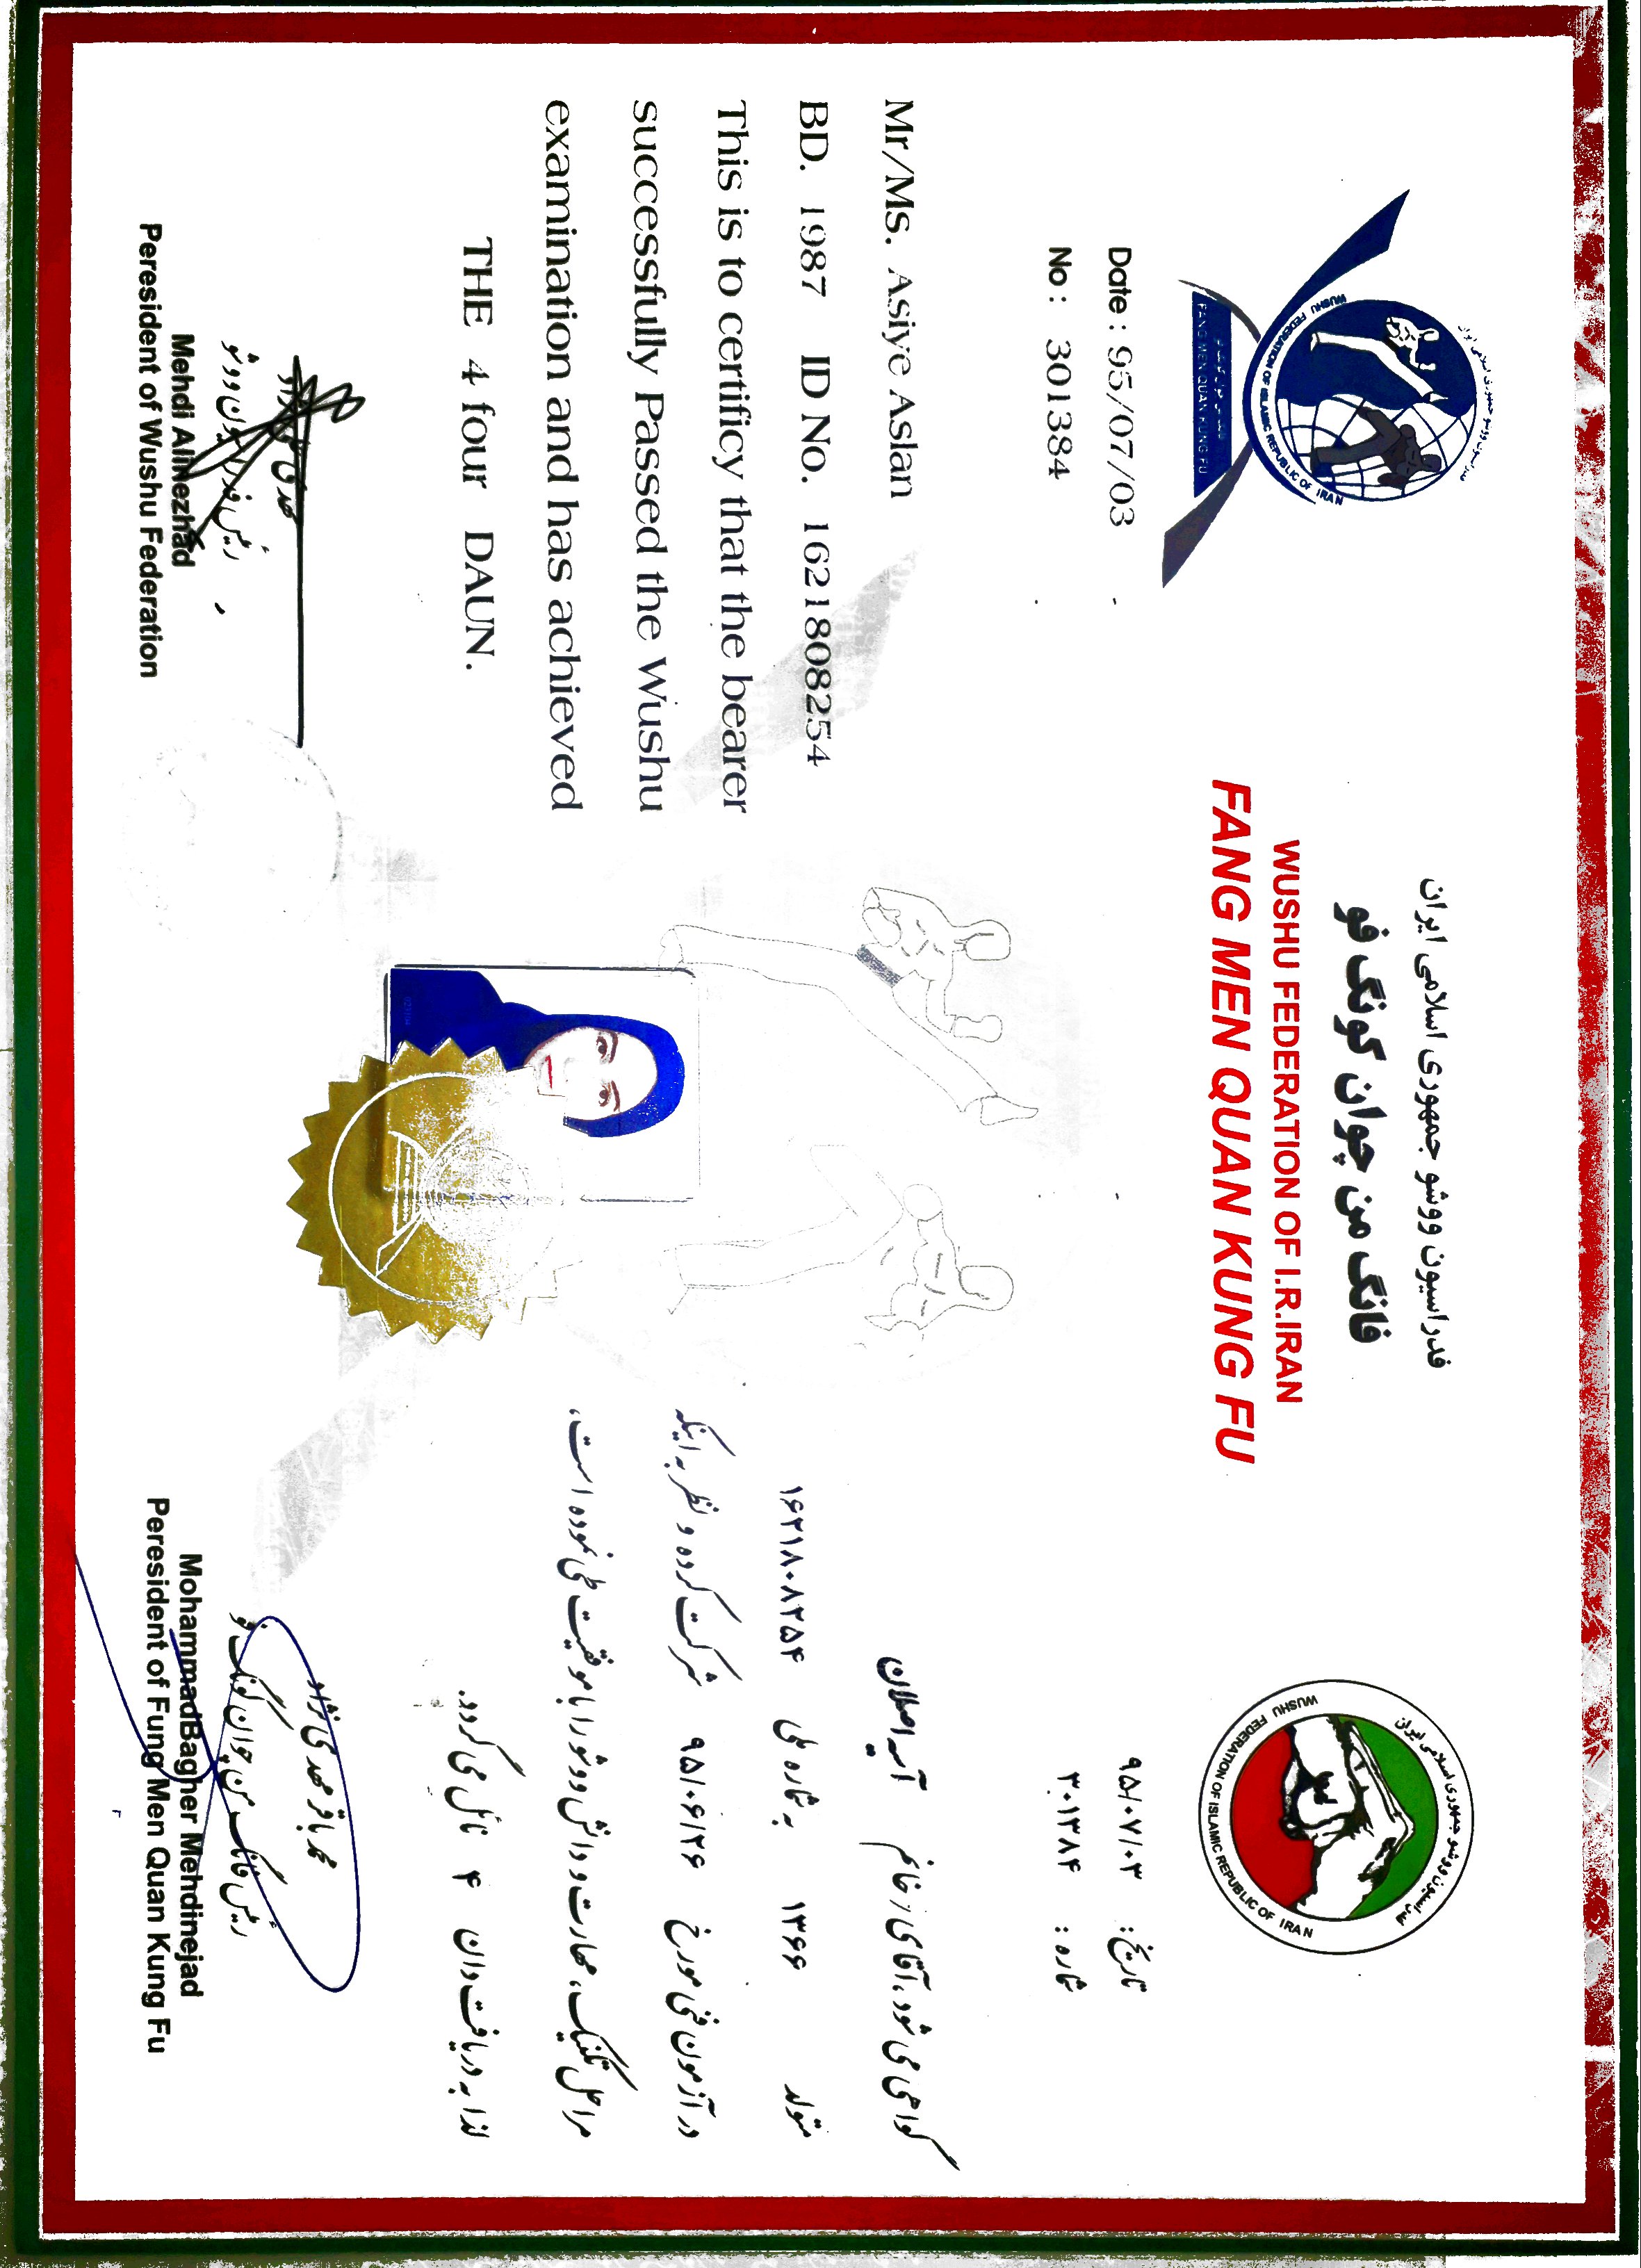 فدراسیون ووشو جمهوری اسلامی ایران
فانگ من چوان کونگ فو
WUSHU FEDERATION OF I.R.IRAN
FANG MEN QUAN KUNG FU
فدراسیون ووشو جمهوری اسلامی ایران
WUSHU FEDERATION OF ISLAMIC REPUBLIC OF IRAN
FANG MEN QUAN KUNG FU
Date : 95/07/03
No : 301384
Mr/Ms. Asiye Aslan
BD. 1987 ID No. 1621808254
This is to certificy that the bearer
successfully Passed the Wushu
examination and has achieved
THE 4 four DAUN.
مهدی علی نژاد
رئیس فدراسیون ووشو
Mehdi AliNezhad
Peresident of Wushu Federation
فدراسیون ووشو جمهوری اسلامی ایران
WUSHU FEDERATION OF ISLAMIC REPUBLIC OF IRAN
تاریخ : ۹۵/۰۷/۰۳
شماره : ۳۰۱۳۸۴
گواهی می شود، آقای / خانم آسیه اصلان
متولد ۱۳۶۶ به شماره ملی ۱۶۲۱۸۰۸۲۵۴
در آزمون فنی مورخ ۹۵/۰۶/۲۶ شرکت کرده و نظر به اینکه
مراحل تکنیک، مهارت و دانش ووشو را با موفقیت طی نموده است،
لذا به دریافت دان ۴ نائل می گردد.
محمد باقر مهدی نژاد
رئیس فانگ من چوان کونگ فو
MohammadBagher Mehdinejad
Peresident of Fung Men Quan Kung Fu